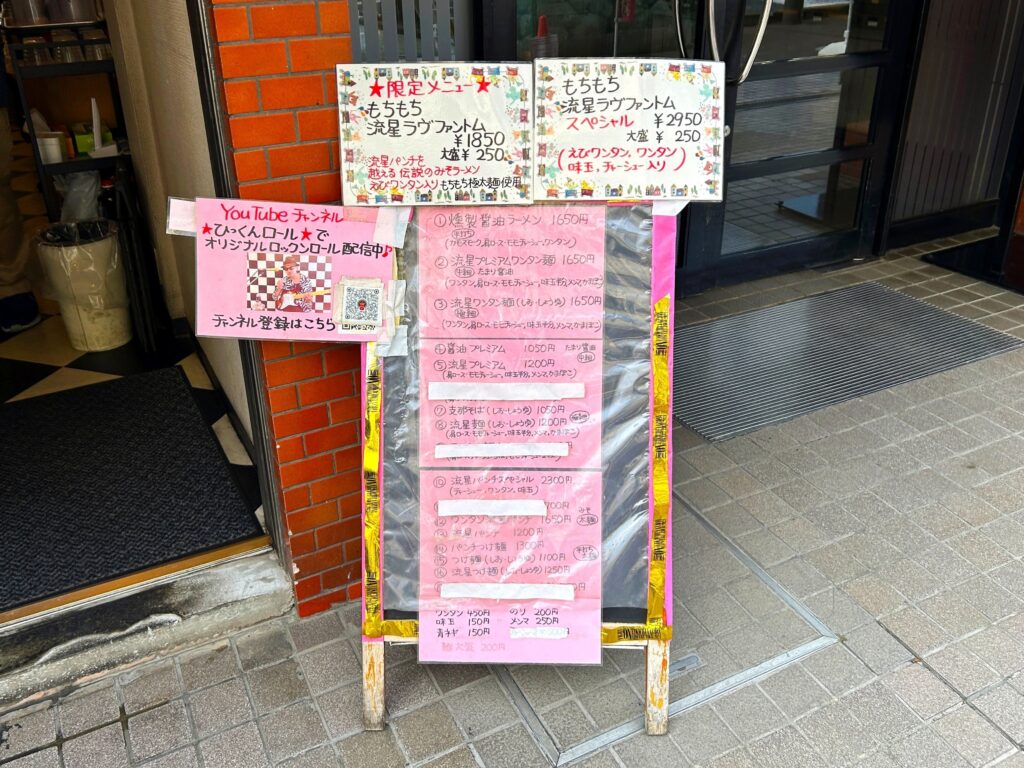 ★限定メニュー★
もちもち
流星ラヴファントム
¥1850
大盛¥250
流星パンチを
越える伝説のみそラーメン
えびワンタン入りもちもち極太麺使用
もちもち
流星ラヴファントム
スペシャル ¥2950
大盛¥250
(えびワンタン,ワンタン
味玉,チャーシュー入り)
YouTubeチャンネル
★ひっくんロール★で
オリジナルロックンロール配信中♪
チャンネル登録はこちら
①燻製醤油ラーメン 1650円
平打ち
(カモスモーク,肩ロース・モモチャーシュー,ワンタン)
②流星プレミアムワンタン麺 1650円
中細 たまり醤油
(ワンタン,肩ロース・モモチャーシュー,味玉半分,メンマ,かまぼこ)
③流星ワンタン麺(しお・しょうゆ) 1650円
極細
(ワンタン,肩ロース・モモチャーシュー,味玉半分,メンマ,かまぼこ)
④醤油プレミアム 1050円 たまり醤油
⑤流星プレミアム 1200円 中細
(肩ロース・モモチャーシュー,味玉半分,メンマ,かまぼこ)
⑦支那そば(しお・しょうゆ) 1050円
⑧流星麺(しお・しょうゆ) 1200円 極細
(肩ロース・モモチャーシュー,味玉半分,メンマ,かまぼこ)
⑩流星パンチスペシャル 2300円
(チャーシュー,ワンタン,味玉)
700円
⑫ワンタン流星パンチ 1650円 みそ
⑬流星パンチ 1200円 太麺
⑭パンチつけ麺 1300円
⑮つけ麺(しお・しょうゆ) 1100円 平打ち
⑯流星つけ麺(しお・しょうゆ) 1250円
ワンタン 450円 のり 200円
味玉 150円 メンマ 250円
青ネギ 150円
200円